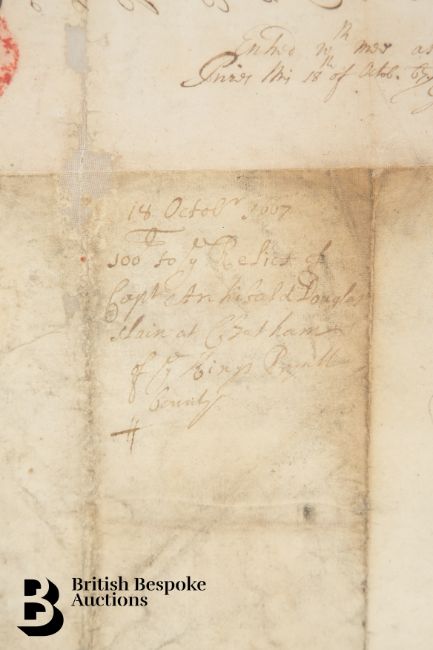 Entred wth mee
this 18th of Octob. 67
18 Octobr 1667
100 to ye Relict of
Capt Archibald Douglas
slain at Chatham
of ye Kings
bounty
British Bespoke
Auctions